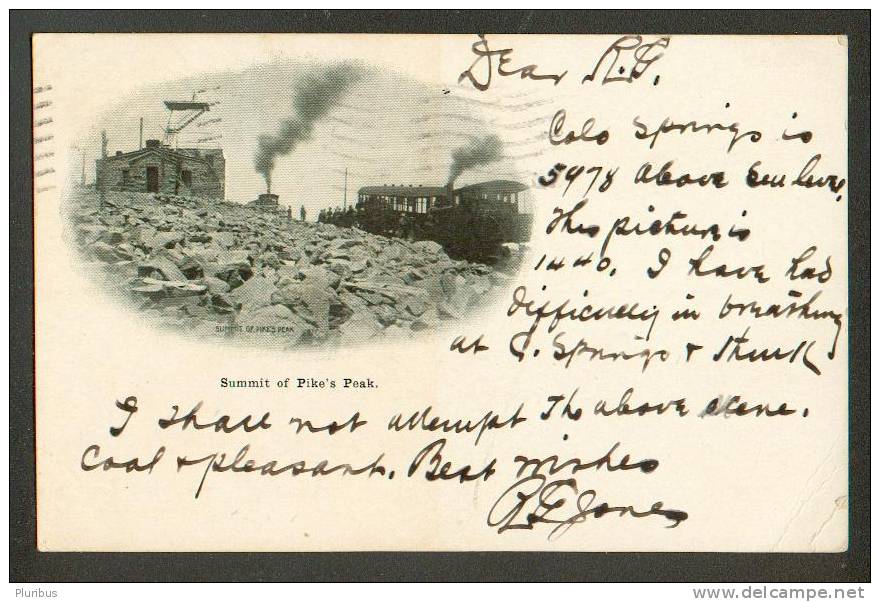 Dear R.G.
Colo Springs is
5978 above Sea level.
This picture is
1440. I have had
difficulty in breathing
at C. Springs & think
SUMMIT OF PIKE'S PEAK
Summit of Pike's Peak.
I shall not attempt The above scene.
Cool & pleasant. Best wishes
RG Jones
Pluribus
www.delcampe.net